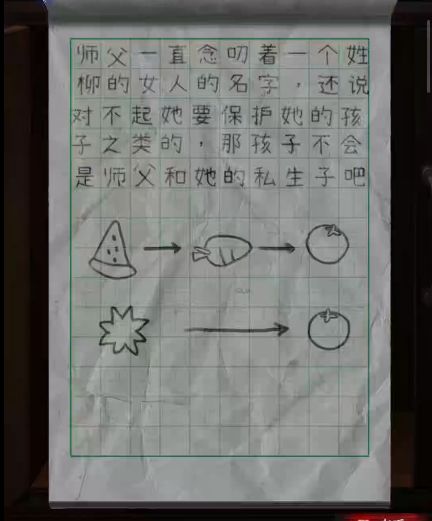 师父一直念叨着一个姓
柳的女人的名字，还说
对不起她要保护她的孩
子之类的，那孩子不会
是师父和她的私生子吧